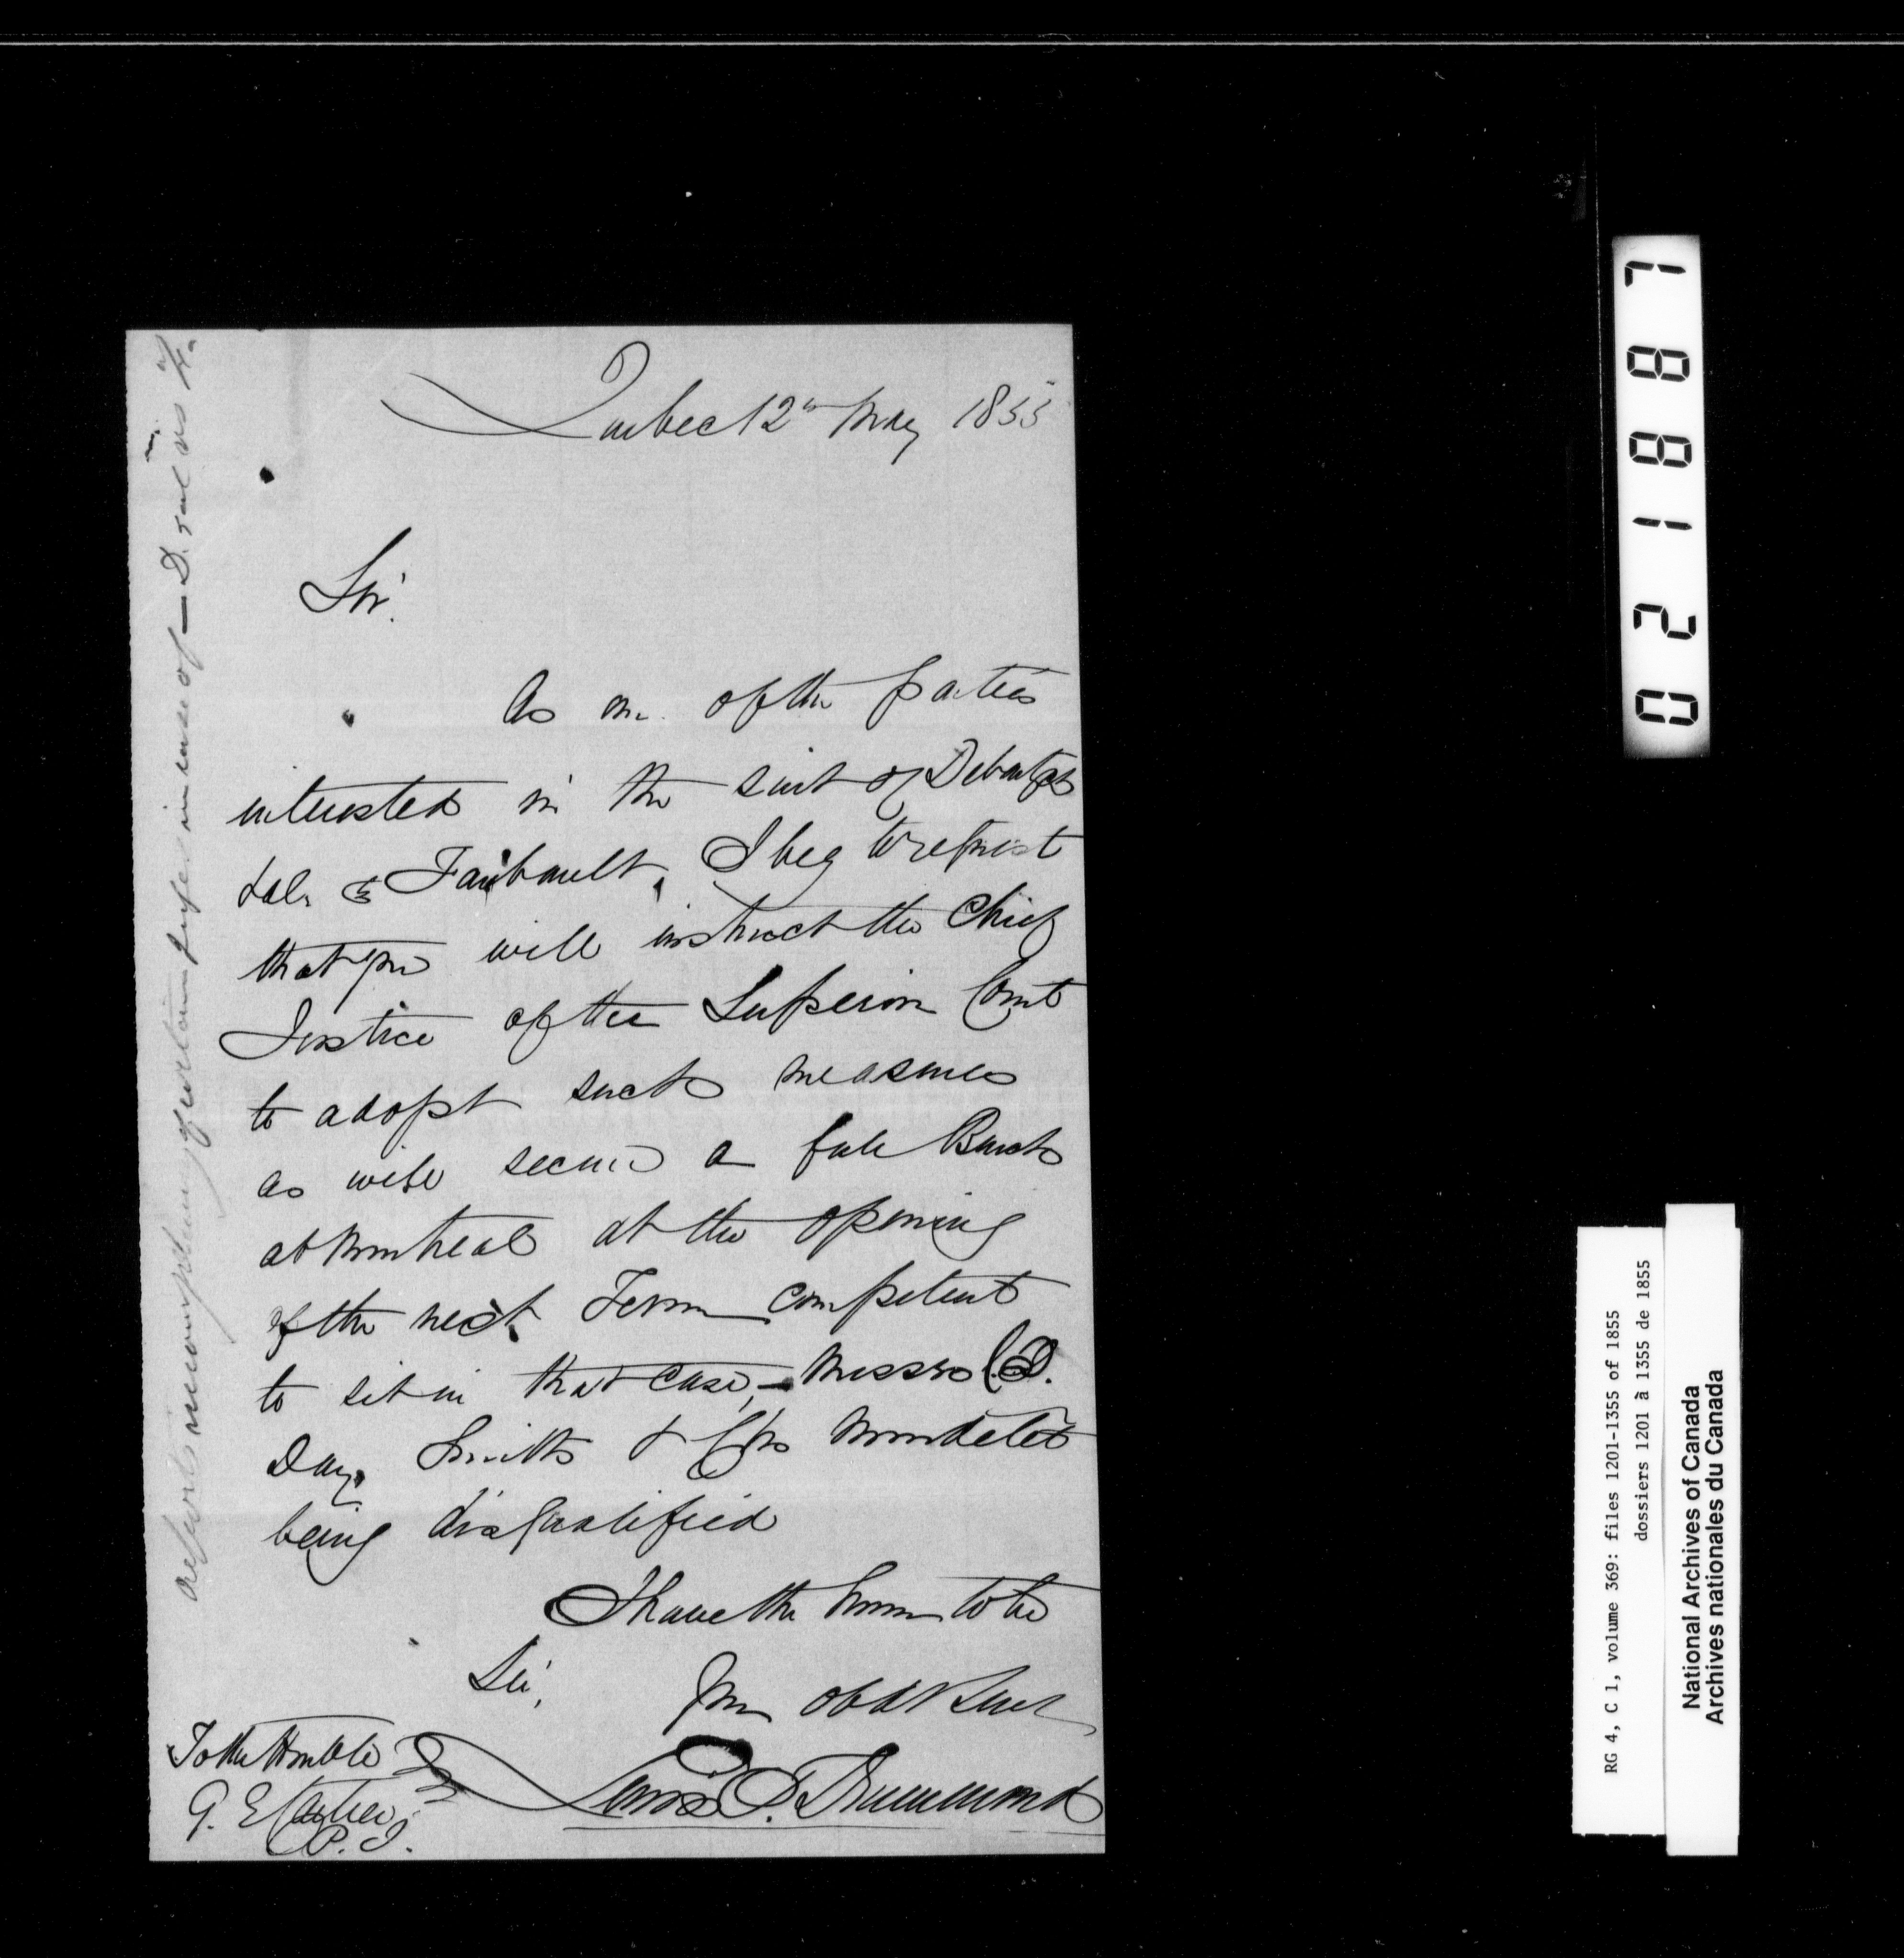 Quebec 12th May 1855
Sir.
As one of the parties
interested in the suit of Debartzch
& al. & Faribault, I beg to request
that you will instruct the Chief
Justice of the Superior Court
to adopt such measures
as will secure a full Bench
at Montreal at the opening
of the next Term competent
to sit in that case, – Messrs C.D.
Day, Smith & Chs Mondelet
being disqualified
I have the honor to be
Sir,
Your obdt Servt
Lewis T. Drummond
To the Honble
G. E. Cartier
P. S.
of certain Judges in case of — D. & al vs F.
0 2 1 8 8 7
RG 4, C 1, volume 369: files 1201-1355 of 1855
dossiers 1201 à 1355 de 1855
National Archives of Canada
Archives nationales du Canada